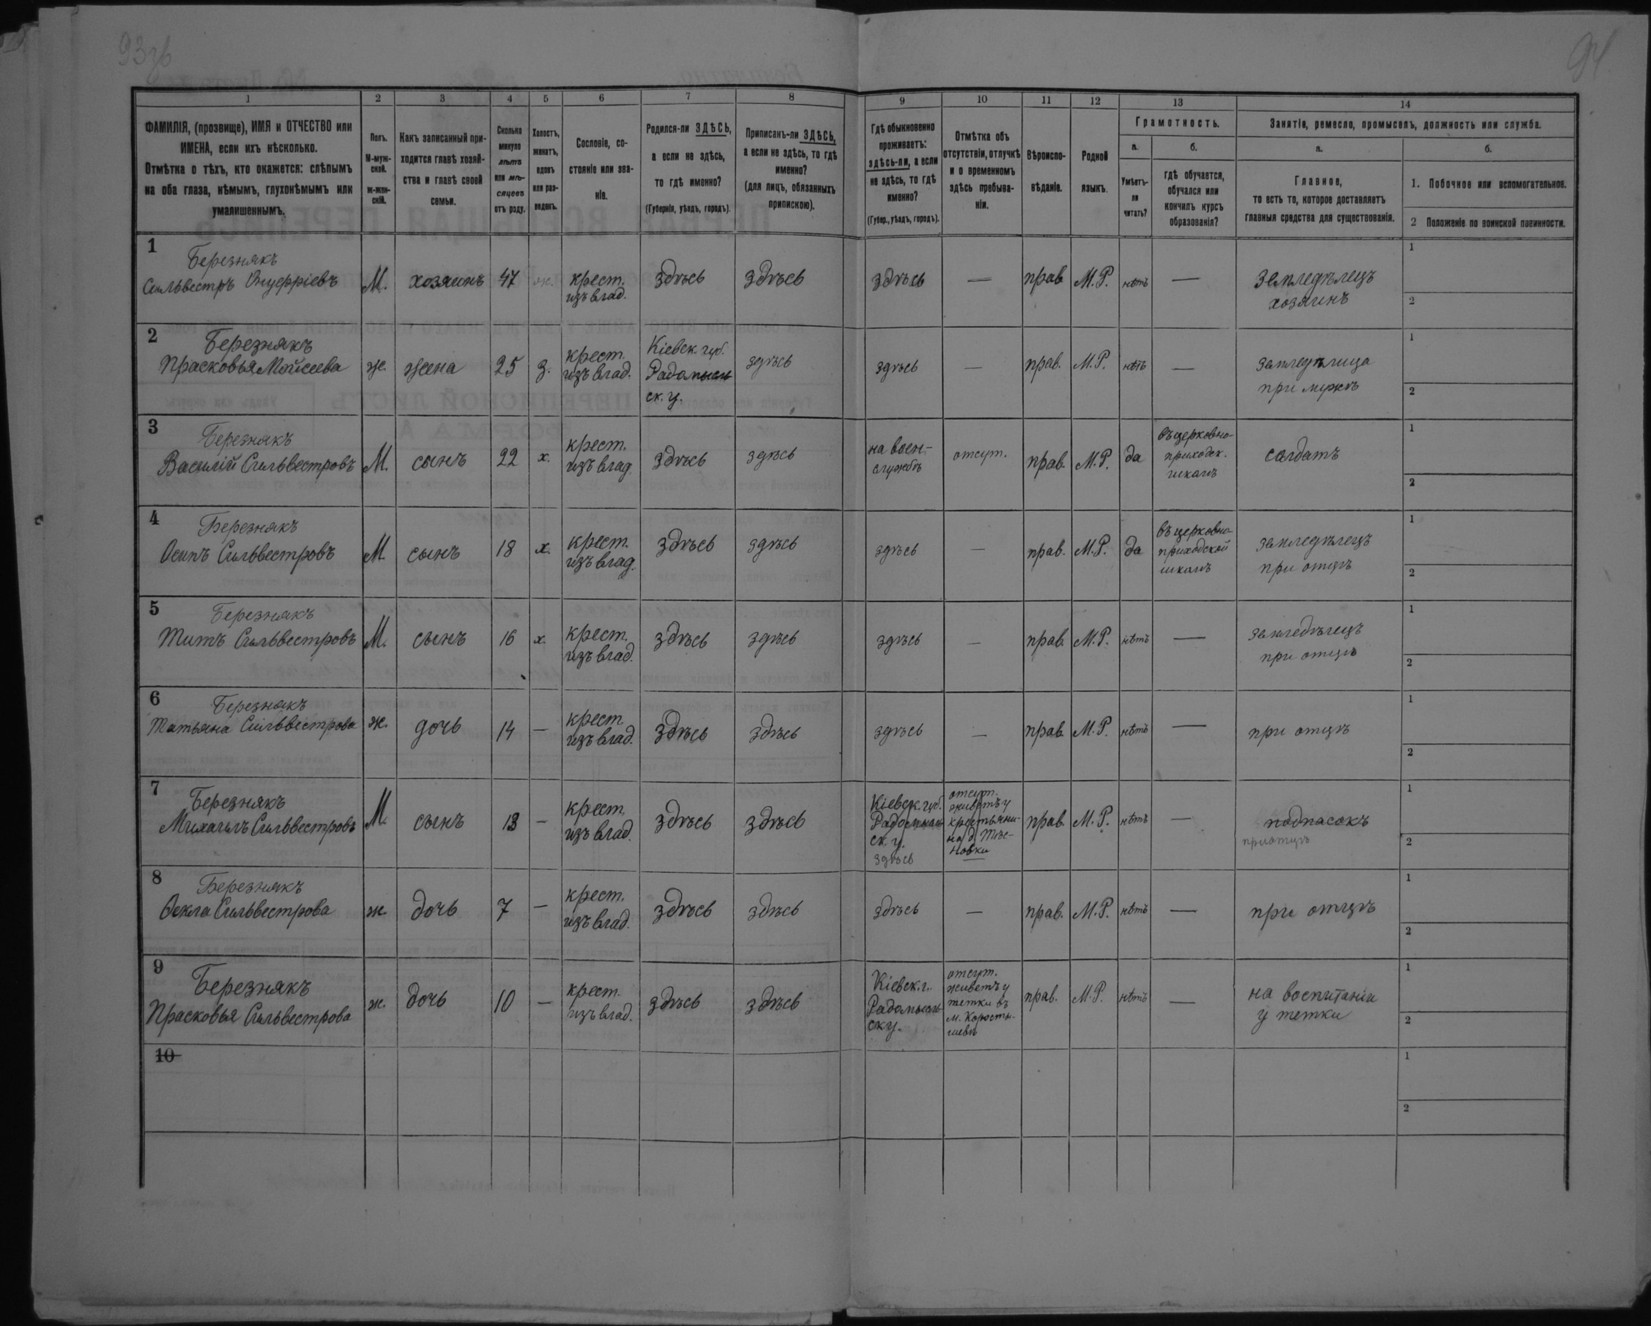 93об
94
1 2 3 4 5 6 7 8 9 10 11 12 13 14
ФАМИЛІЯ, (прозвище), ИМЯ и ОТЧЕСТВО или
ИМЕНА, если ихъ нѣсколько.
Отмѣтка о тѣхъ, кто окажется: слѣпымъ
на оба глаза, нѣмымъ, глухонѣмымъ или
умалишеннымъ.
Полъ.
М-муж-
ской.
ж-жен-
скій.
Какъ записанный при-
ходится главѣ хозяй-
ства и главѣ своей
семьи.
Сколько
минуло
лѣтъ
или мѣ-
сяцевъ
отъ роду.
Холостъ,
женатъ,
вдовъ
или раз-
веденъ.
Сословіе, со-
стояніе или зва-
ніе.
Родился-ли ЗДѢСЬ,
а если не здѣсь,
то гдѣ именно?
(Губернія, уѣздъ, городъ).
Приписанъ-ли ЗДѢСЬ,
а если не здѣсь, то гдѣ
именно?
(для лицъ, обязанныхъ
припискою).
Гдѣ обыкновенно
проживаетъ:
здѣсь-ли, а если
не здѣсь, то гдѣ
именно?
(Губер., уѣздъ, городъ).
Отмѣтка объ
отсутствіи, отлучкѣ
и о временномъ
здѣсь пребыва-
ніи.
Вѣроиспо-
вѣданіе.
Родной
языкъ.
Грамотность.
а.
Умѣетъ-
ли
читать?
б.
гдѣ обучается,
обучался или
кончилъ курсъ
образованія?
Занятіе, ремесло, промыселъ, должность или служба.
а.
Главное,
то есть то, которое доставляетъ
главныя средства для существованія.
б.
1. Побочное или вспомогательное.
2 Положеніе по воинской повинности.
1
Березнякъ
Сильвестръ Онуфріевъ М. хозяинъ 47 ж. крест.
изъ влад. здѣсь здѣсь здѣсь — прав М.Р. нѣтъ — земледѣлецъ
хозяинъ
1
2
2
Березнякъ
Прасковья Мойсеева ж. жена 25 з. крест.
изъ влад.
Кіевск. губ.
Радомысль
ск. у.
здѣсь здѣсь — прав. М.Р. нѣтъ — земледѣлица
при мужѣ
1
2
3
Березнякъ
Василій Сильвестровъ М. сынъ 22 х. крест.
изъ влад. здѣсь здѣсь
на воен-
службѣ
отсут. прав. М.Р. да
въ церковно-
приходск.
школѣ
солдатъ
1
2
4
Березнякъ
Осипъ Сильвестровъ М. сынъ 18 х. крест.
изъ влад. здѣсь здѣсь здѣсь — прав. М.Р. да
въ церковно-
приходской
школѣ
земледѣлецъ
при отцѣ
1
2
5
Березнякъ
Титъ Сильвестровъ М. сынъ 16 х. крест.
изъ влад. здѣсь здѣсь здѣсь — прав. М.Р. нѣтъ — земледѣлецъ
при отцѣ
1
2
6
Березнякъ
Татьяна Сильвестрова ж. дочь 14 — крест.
изъ влад. здѣсь здѣсь здѣсь — прав. М.Р. нѣтъ — при отцѣ
1
2
7
Березнякъ
Михаилъ Сильвестровъ М. сынъ 13 — крест.
изъ влад. здѣсь здѣсь
Кіевск. губ.
Радомысль
ск. у.
здѣсь
отсут.
живетъ у
крестьяни-
на
новки
прав. М.Р. нѣтъ — подпасокъ
при отцѣ
1
2
8
Березнякъ
Сильвестрова ж. дочь 7 — крест.
изъ влад. здѣсь здѣсь здѣсь — прав. М.Р. нѣтъ — при отцѣ
1
2
9
Березнякъ
Прасковья Сильвестрова ж. дочь 10 — крест.
изъ влад. здѣсь здѣсь
Кіевск. г.
Радомысль
ск у.
отсут.
живетъ у
тетки въ
м. Коросты-
шевѣ
прав. М.Р. нѣтъ — на воспитаніи
у тетки
1
2
10
1
2